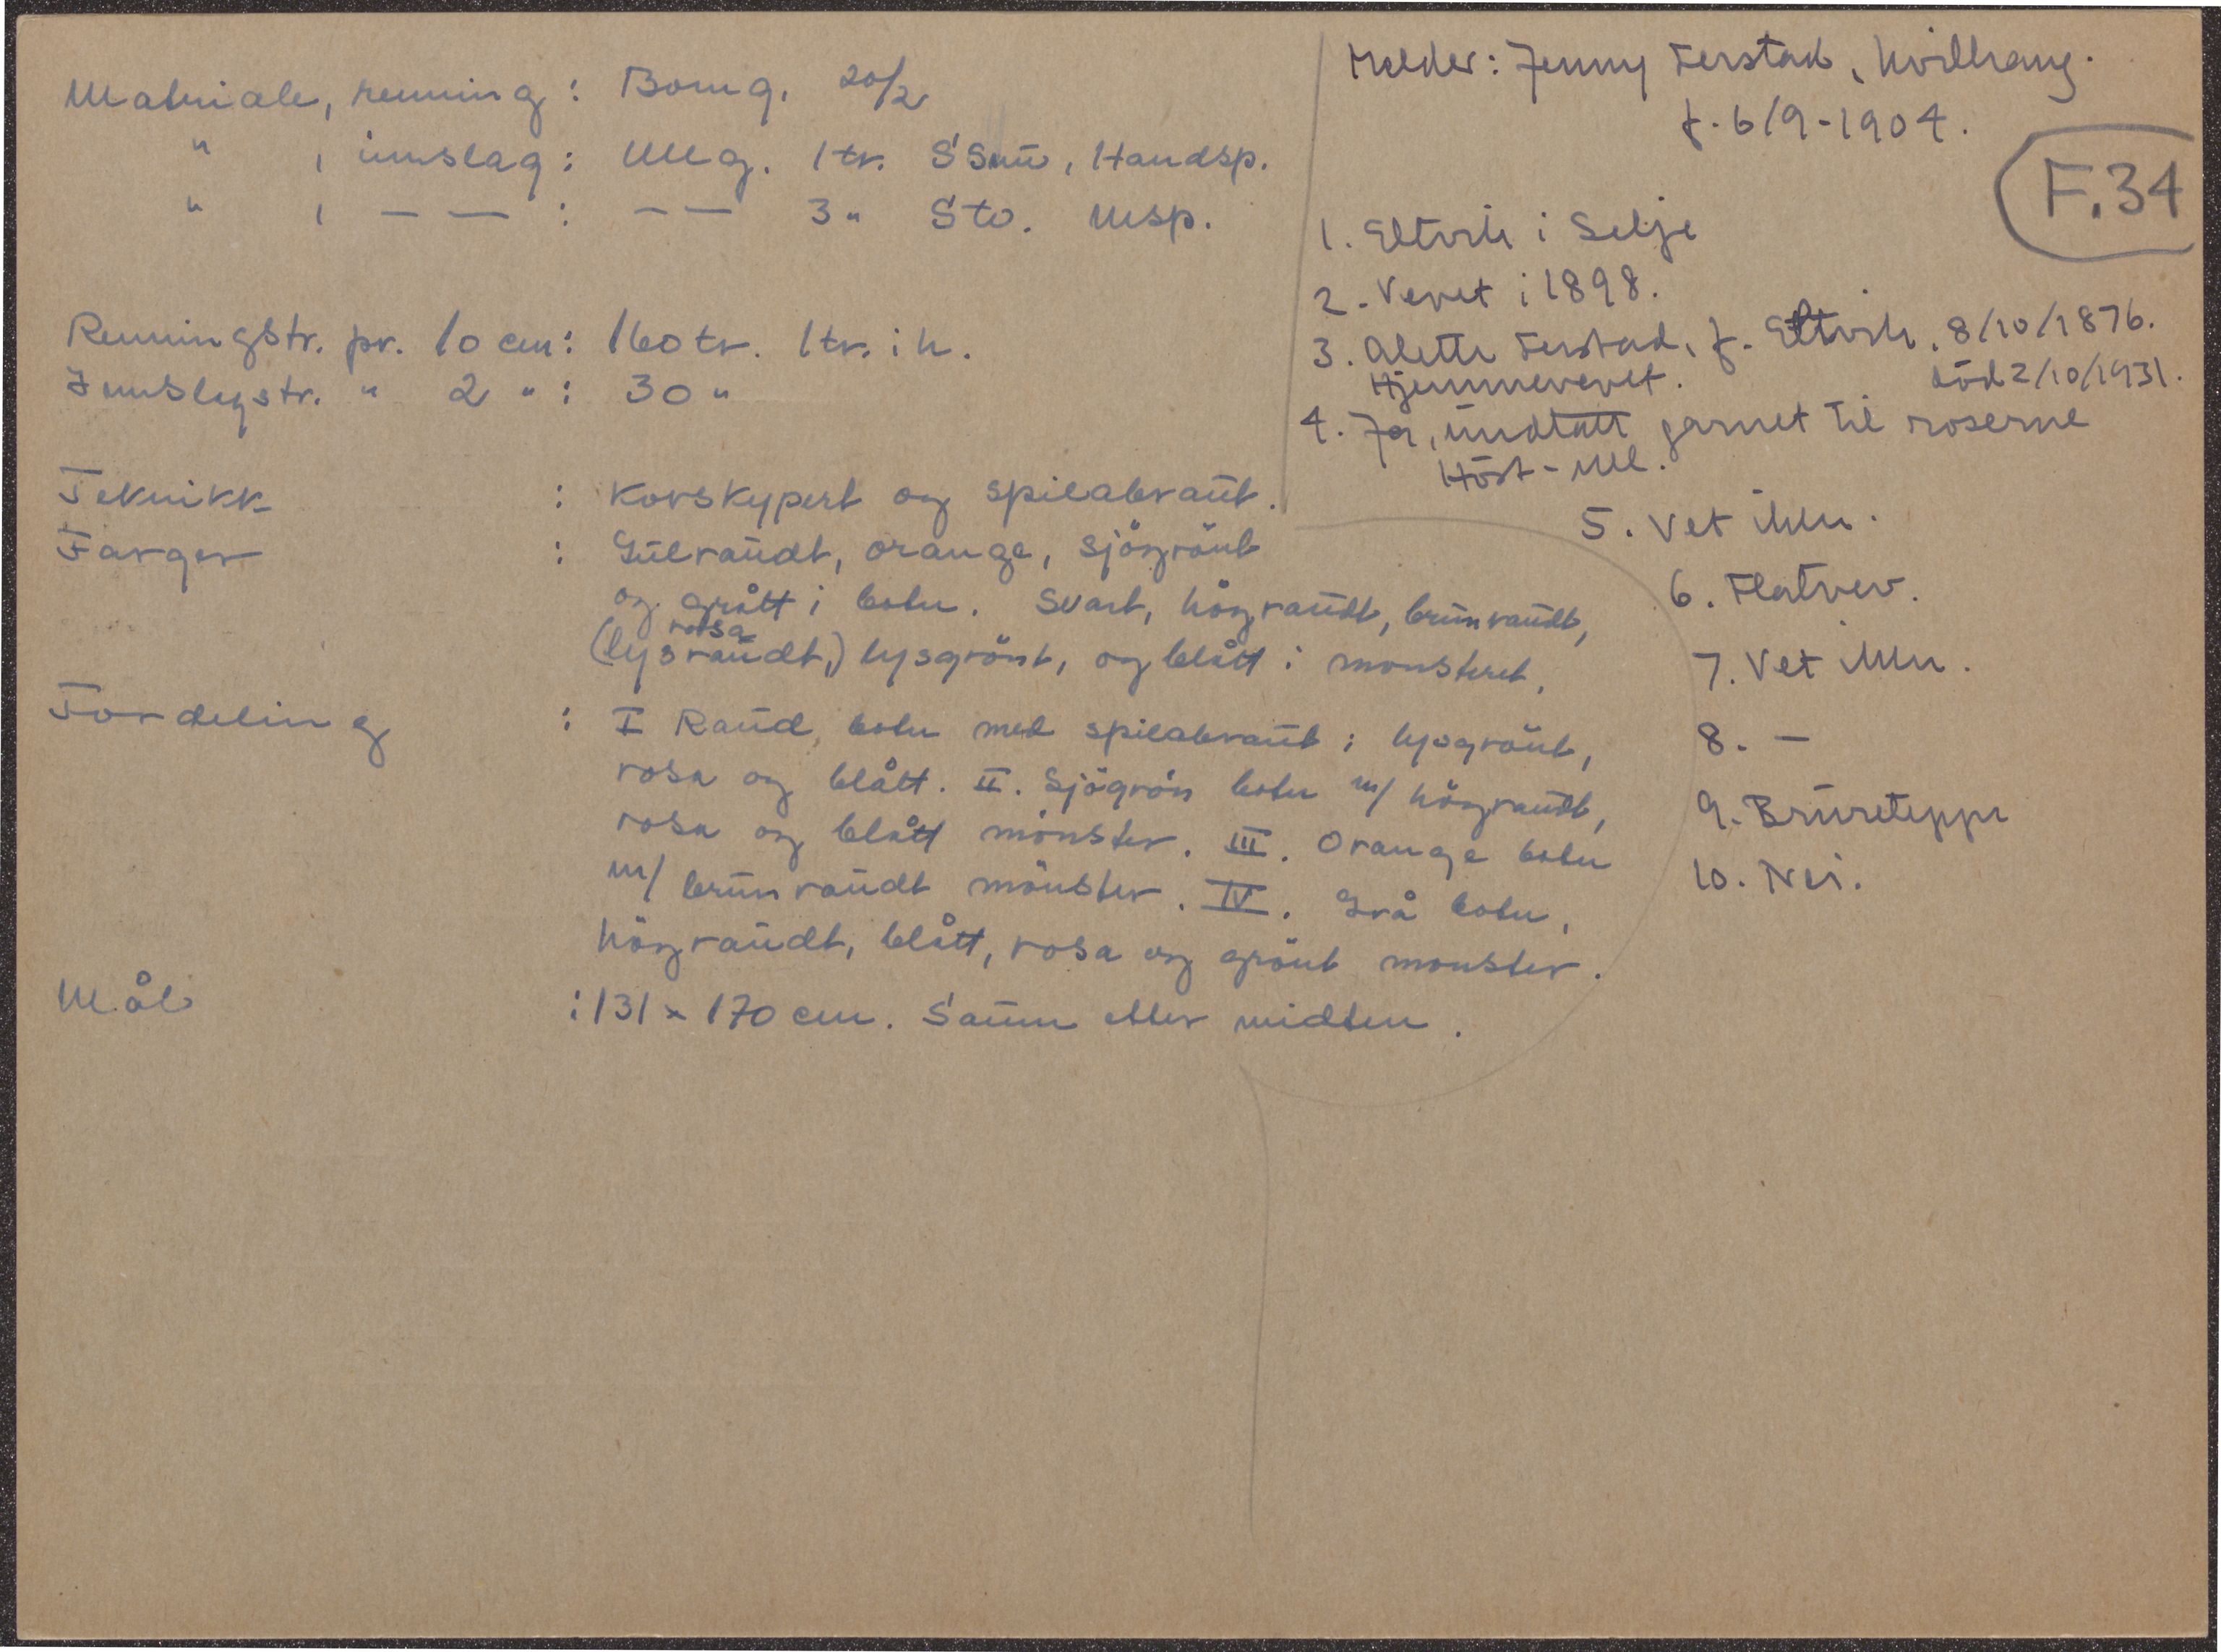 Materiale, renning : Bomg. 20/2
" , innslag : Ullg. 1 tr. S Snu, Handsp.
" , — — : — — 3 " Sto. Msp.
Renningstr. pr. 10 cm : 160 tr. 1 tr. i h.
Innslagstr. " 2 " : 30 "
Teknikk : Korskypert og spilabraut.
Farger : Gulraudt, orange, sjögrönt
og grått i botn. Svart, högraudt, brunraudt,
rosa
(lysraudt,) lysgrönt, og blått i monsteret.
Fordeling : I Raud botn med spilabraut i lysgrönt,
rosa og blått. II. Sjögrön botn m/ högraudt,
rosa og blått mönster. III. Orange botn
m/ brunraudt mönster. IV. Grå botn,
högraudt, blått, rosa og grönt monster.
Mål : 131 x 170 cm. Saum etter midten.
Melder: Jenny Ferstad,
f. 6/9-1904.
F.34
1. Eltvik i Selje
2. Vevet i 1898.
3. Alette Ferstad, f. Eltvik, 8/10/1876.
död 2/10/1931.
Hjemmevevet.
4. Ja, undtatt garnet til roserne
Höst-ull.
5. Vet ikke.
6. Flatvev.
7. Vet ikke.
8. —
9. Brureteppe
10. Nei.